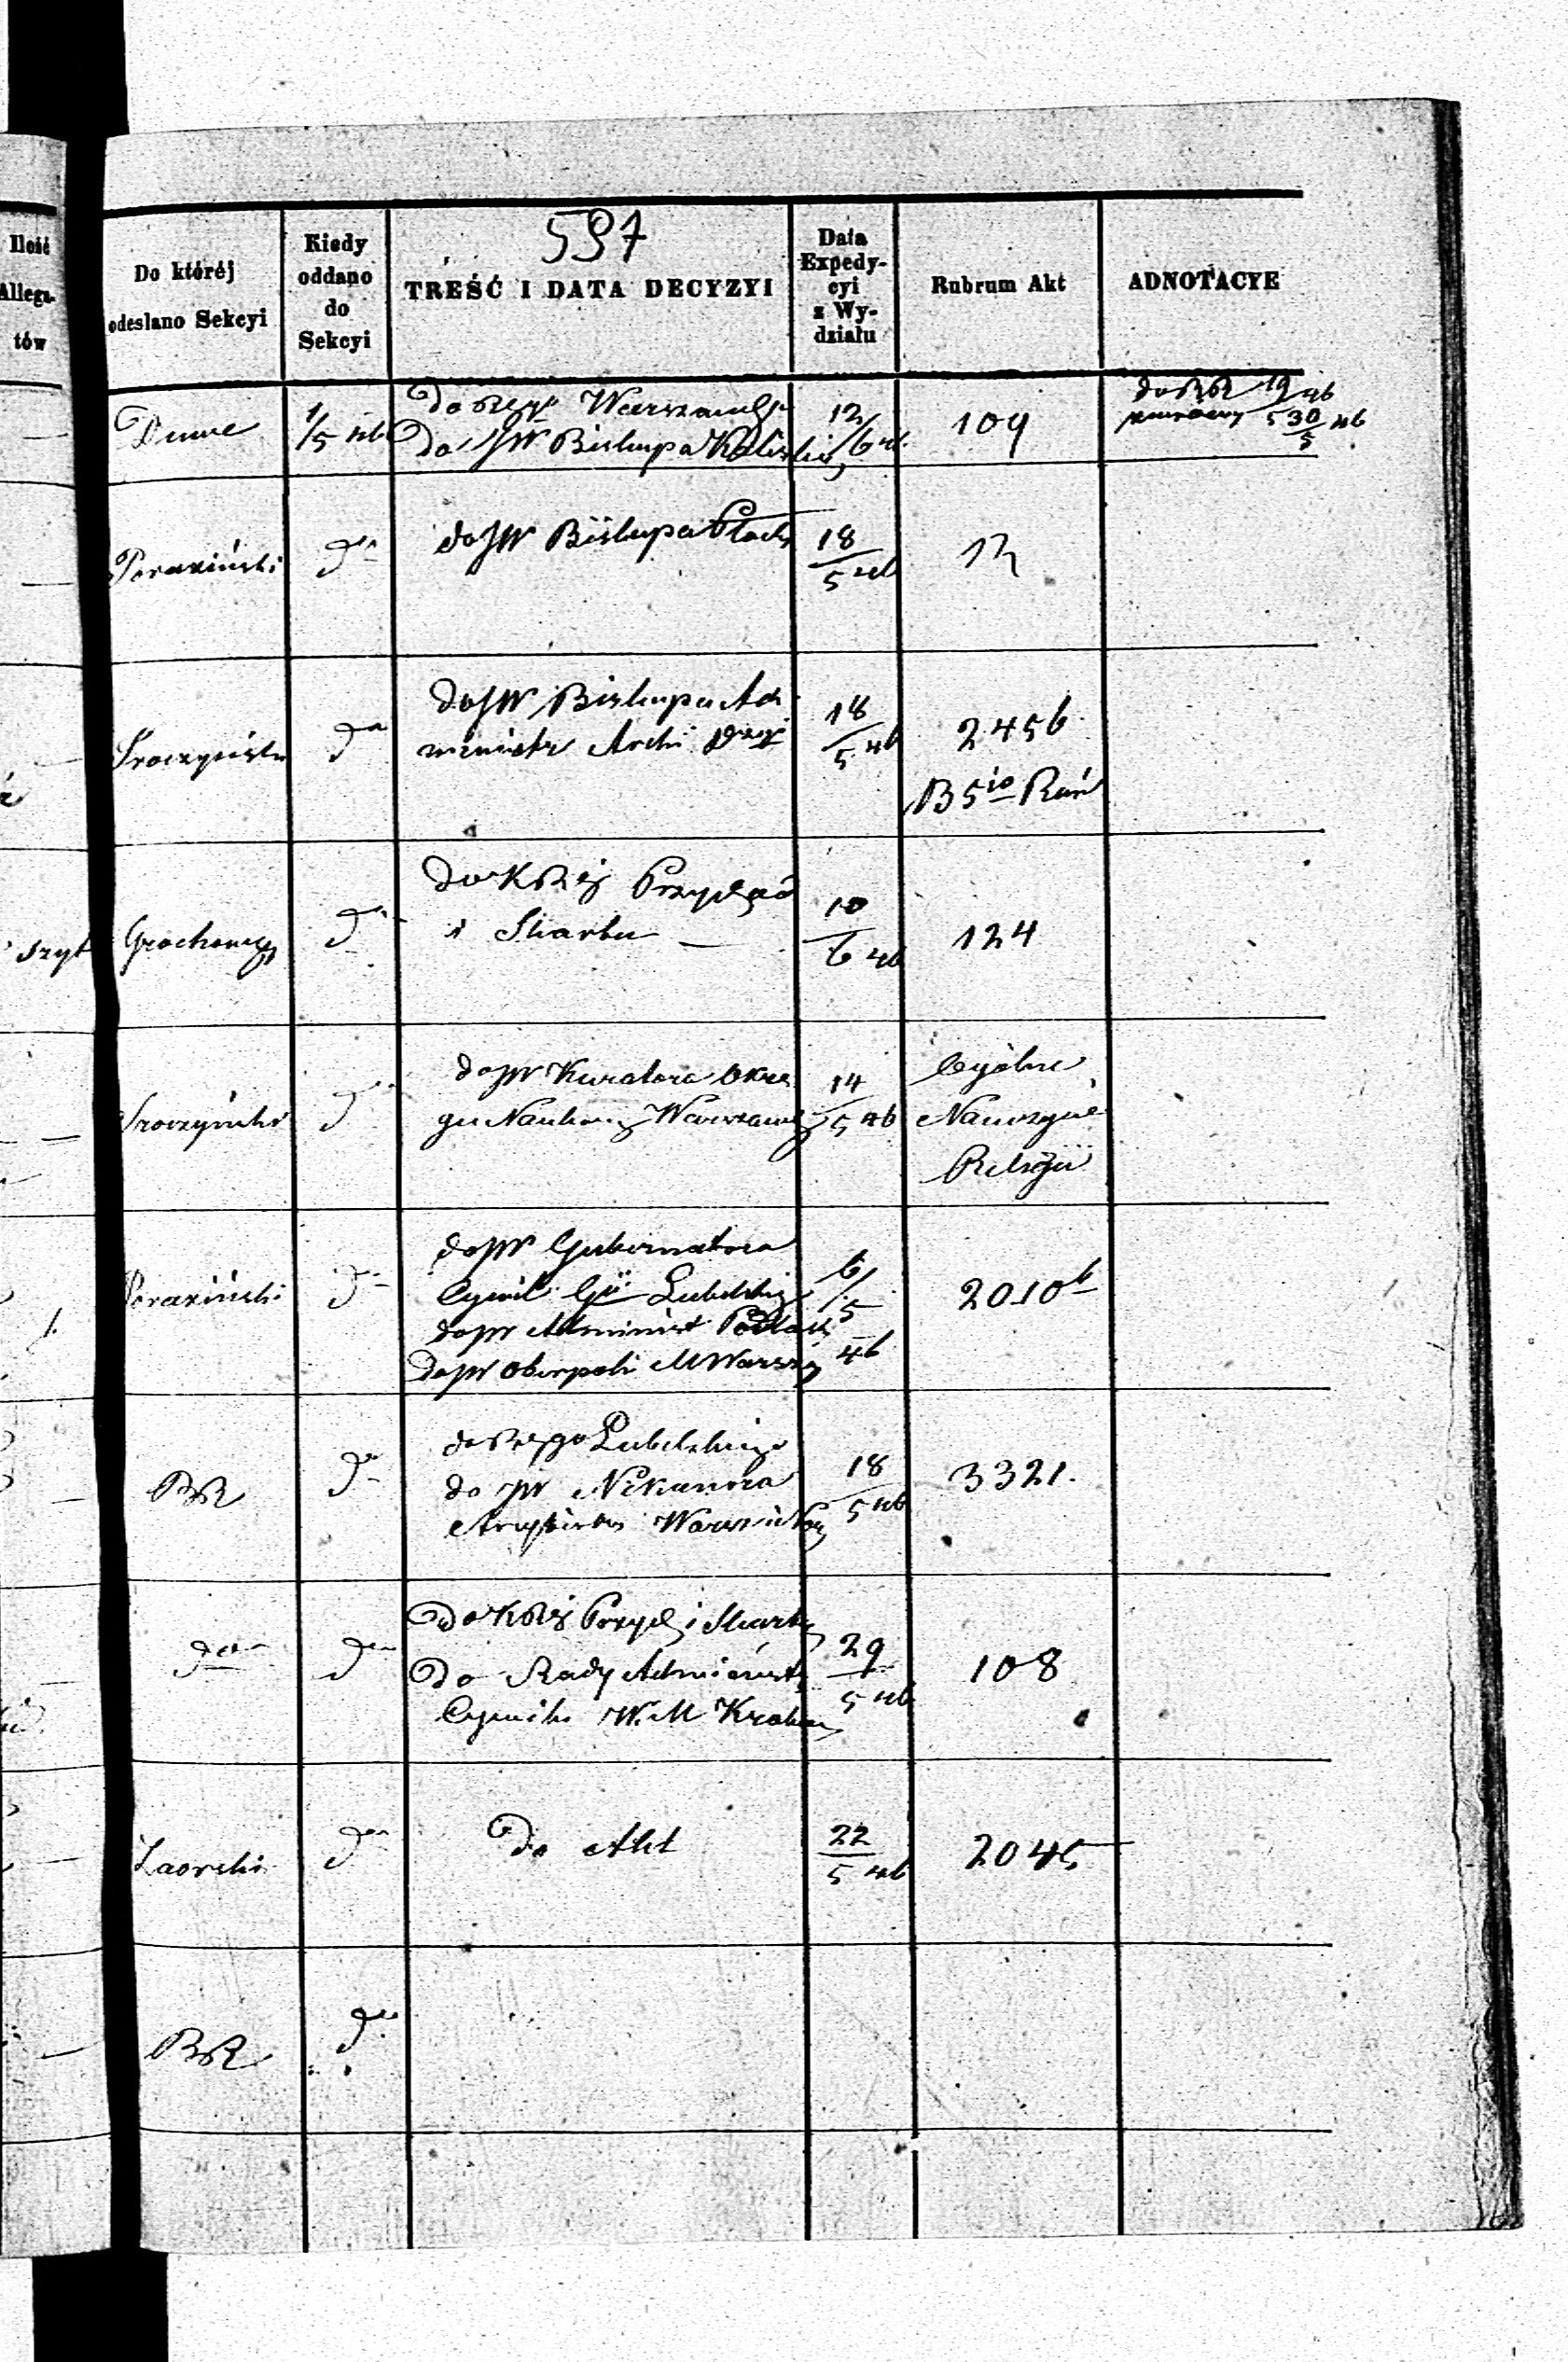 597
Ilość
Allega-
tów
Do któréj
odesłano Sekcyi
Kiedy
oddano
do
Sekcyi
TREŚĆ I DATA DECYZYI
Data
Expedy-
cyi
z Wy-
działu
Rubrum Akt
ADNOTACYE
1/5 46
Do Warszaws
Do JW Biskupa Kaliski
12/6 46
109
19
5 46
30/5 46
Poraziński
do
do JW Biskupa Płock
18/5 46
12
Sroczyński
do
do JW Biskupa Ad
ministr Archi
18/5 46
2456
B 5io
Grochowsg
do
do KRzej Przychod
i Skarbu
10/6 46
124
szyt
Sroczyński
do
do JW Kuratora Okrę
gu Naukowg Warszaws
14/5 46
Ogólne
Religii
Poraziński
do
do JW Gubernatora
Cywil Gu Lubelskig
do JW Administ Podlas
do JW Oberpoli M Warsz
6/5 46
2010b
BR
do
do Lubelskiego
do JW Nikanora
Arcybisk Warsz i
18/5 46
3321.
do
do
Do KRzej Przych i Skarb
Do Rady Administ
Cywiln W. M Krakow
29/5 46
108
Zaorski
do
Do Akt
22/5 46
2045
BR
do